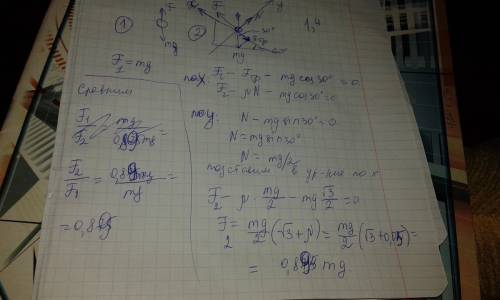 ① F mg
② x y N 30° Fтр 60° mg
1,4
F₁ = mg
Сравним
F₁/F₂ mg/ =
F₂/F₁ = mg/mg =
= 0,89
по x F₂ - Fтр - mg cos30° = 0
F₂ - μN - mg cos30° = 0
по y: N - mg sin30° = 0
N = mg sin30°
N = mg/2
подставим в ур-ние по x
F₂ - μ · mg/2 - mg √3/2 = 0
F₂ = mg/2 (√3 + μ) = mg/2 (√3 + 0,05) =
= 0,89 mg